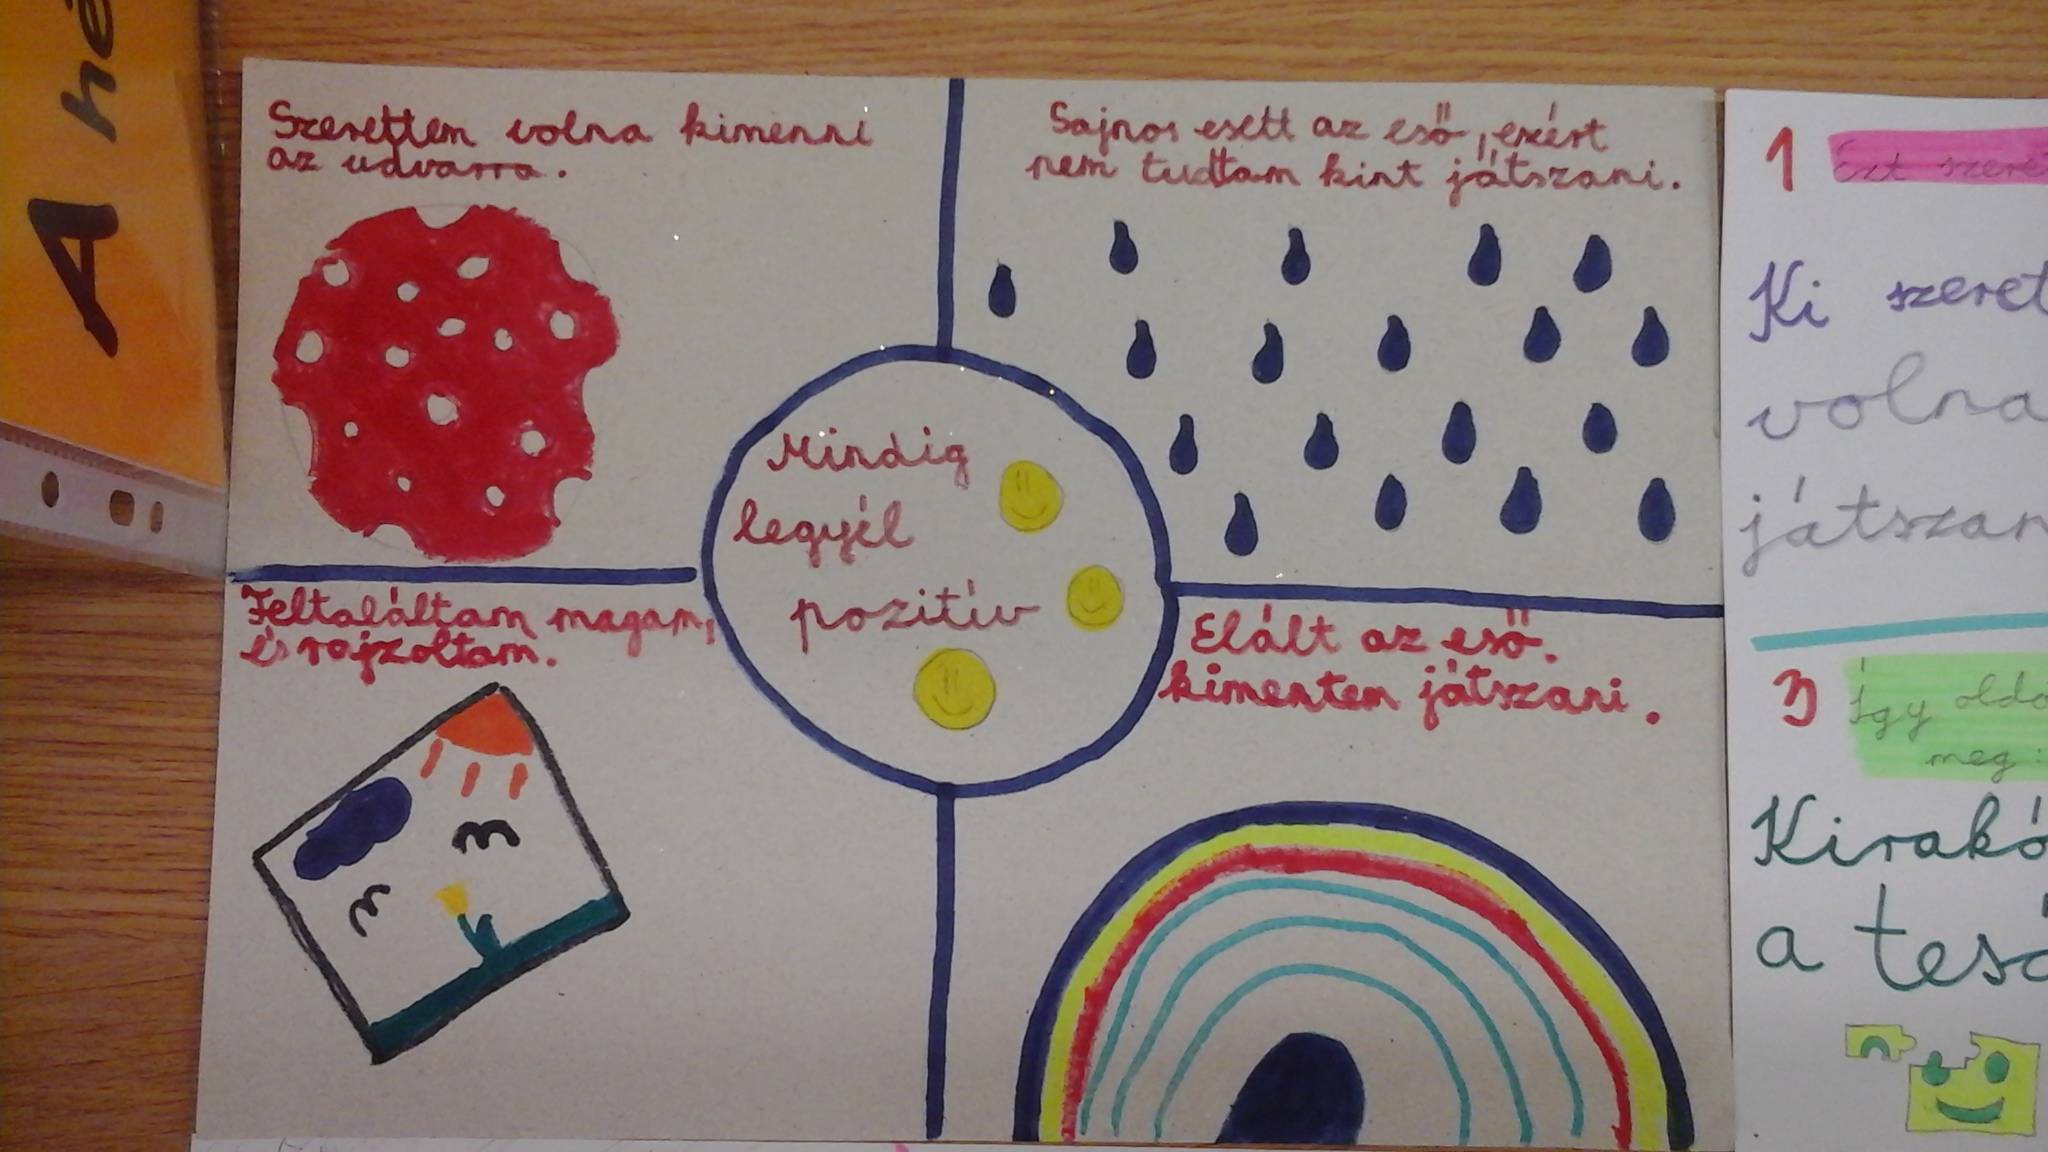 A
Szerettem volna kimenni
az udvarra.
Sajnos esett az eső, ezért
nem tudtam kint játszani.
Mindig
legyél
pozitív
Feltaláltam magam,
és rajzoltam.
Elált az eső.
kimentem játszani.
1
Ezt
Ki
volna
3
Így
meg:
Kirakó
a